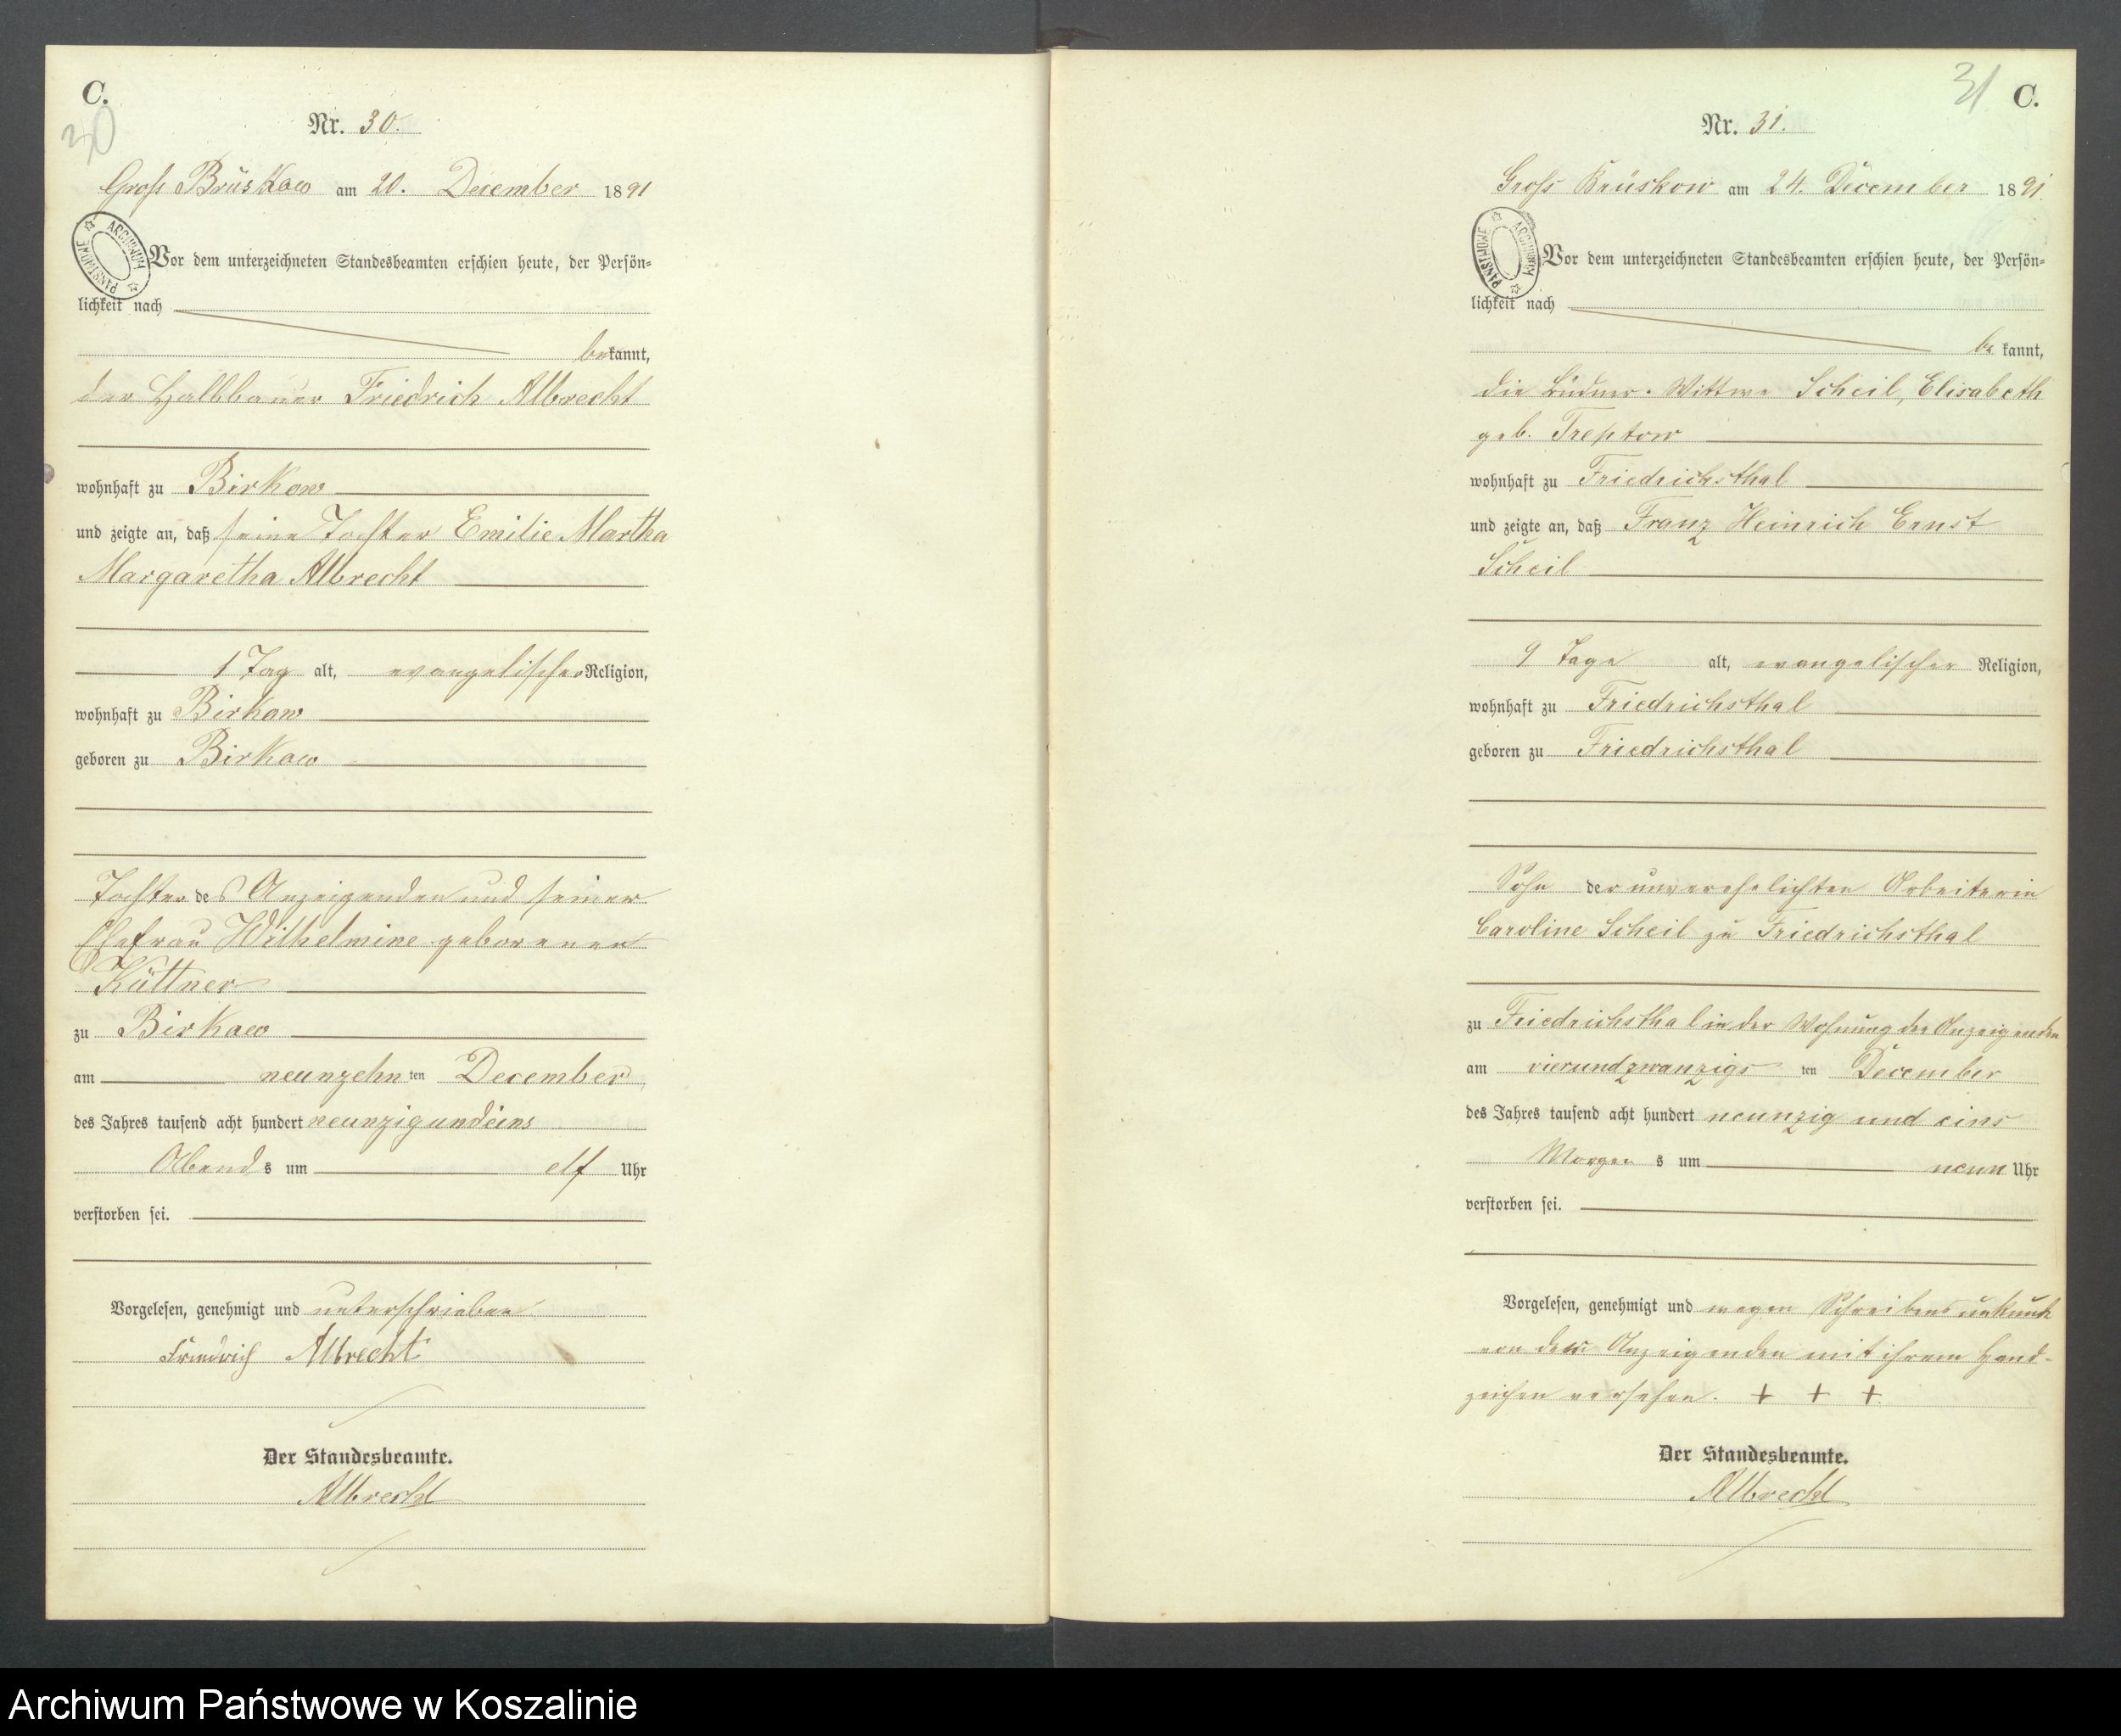 C.
30
Nr. 30.
Groß Brüskow am 20. December 1891
ARCHIWUM PAŃSTWOWE
Vor dem unterzeichneten Standesbeamten erschien heute, der Persön=
lichkeit nach
bekannt,
der Halbbauer Friedrich Albrecht
wohnhaft zu Birkow
und zeigte an, daß seine Tochter Emilie Martha
Margaretha Albrecht
1 Tag alt, evangelischer Religion,
wohnhaft zu Birkow
geboren zu Birkow
Tochter des Anzeigenden und seiner
Ehefrau Wilhelmine geborenen
Küttner
zu Birkow
am neunzehnten December
des Jahres tausend acht hundert neunzigundeins
Abends um elf Uhr
verstorben sei.
Vorgelesen, genehmigt und unterschrieben
Friedrich Albrecht
Der Standesbeamte.
Albrecht
31 C.
Nr. 31.
Groß Brüskow am 24. December 1891.
ARCHIWUM PAŃSTWOWE
Vor dem unterzeichneten Standesbeamten erschien heute, der Persön=
lichkeit nach
bekannt,
die Büdner-Wittwe Scheil, Elisabeth
geb. Treptow
wohnhaft zu Friedrichsthal
und zeigte an, daß Franz Heinrich Ernst
Scheil
9 Tage alt, evangelischer Religion,
wohnhaft zu Friedrichsthal
geboren zu Friedrichsthal
Sohn der unverehelichten Arbeiterin
Caroline Scheil zu Friedrichsthal
zu Friedrichsthal in der Wohnung der Anzeigenden
am vierundzwanzigsten December
des Jahres tausend acht hundert neunzig und eins
Morgens um neun Uhr
verstorben sei.
Vorgelesen, genehmigt und wegen Schreibensunkunde
von der Anzeigenden mit ihrem Hand-
zeichen versehen. + + +
Der Standesbeamte.
Albrecht
Archiwum Państwowe w Koszalinie